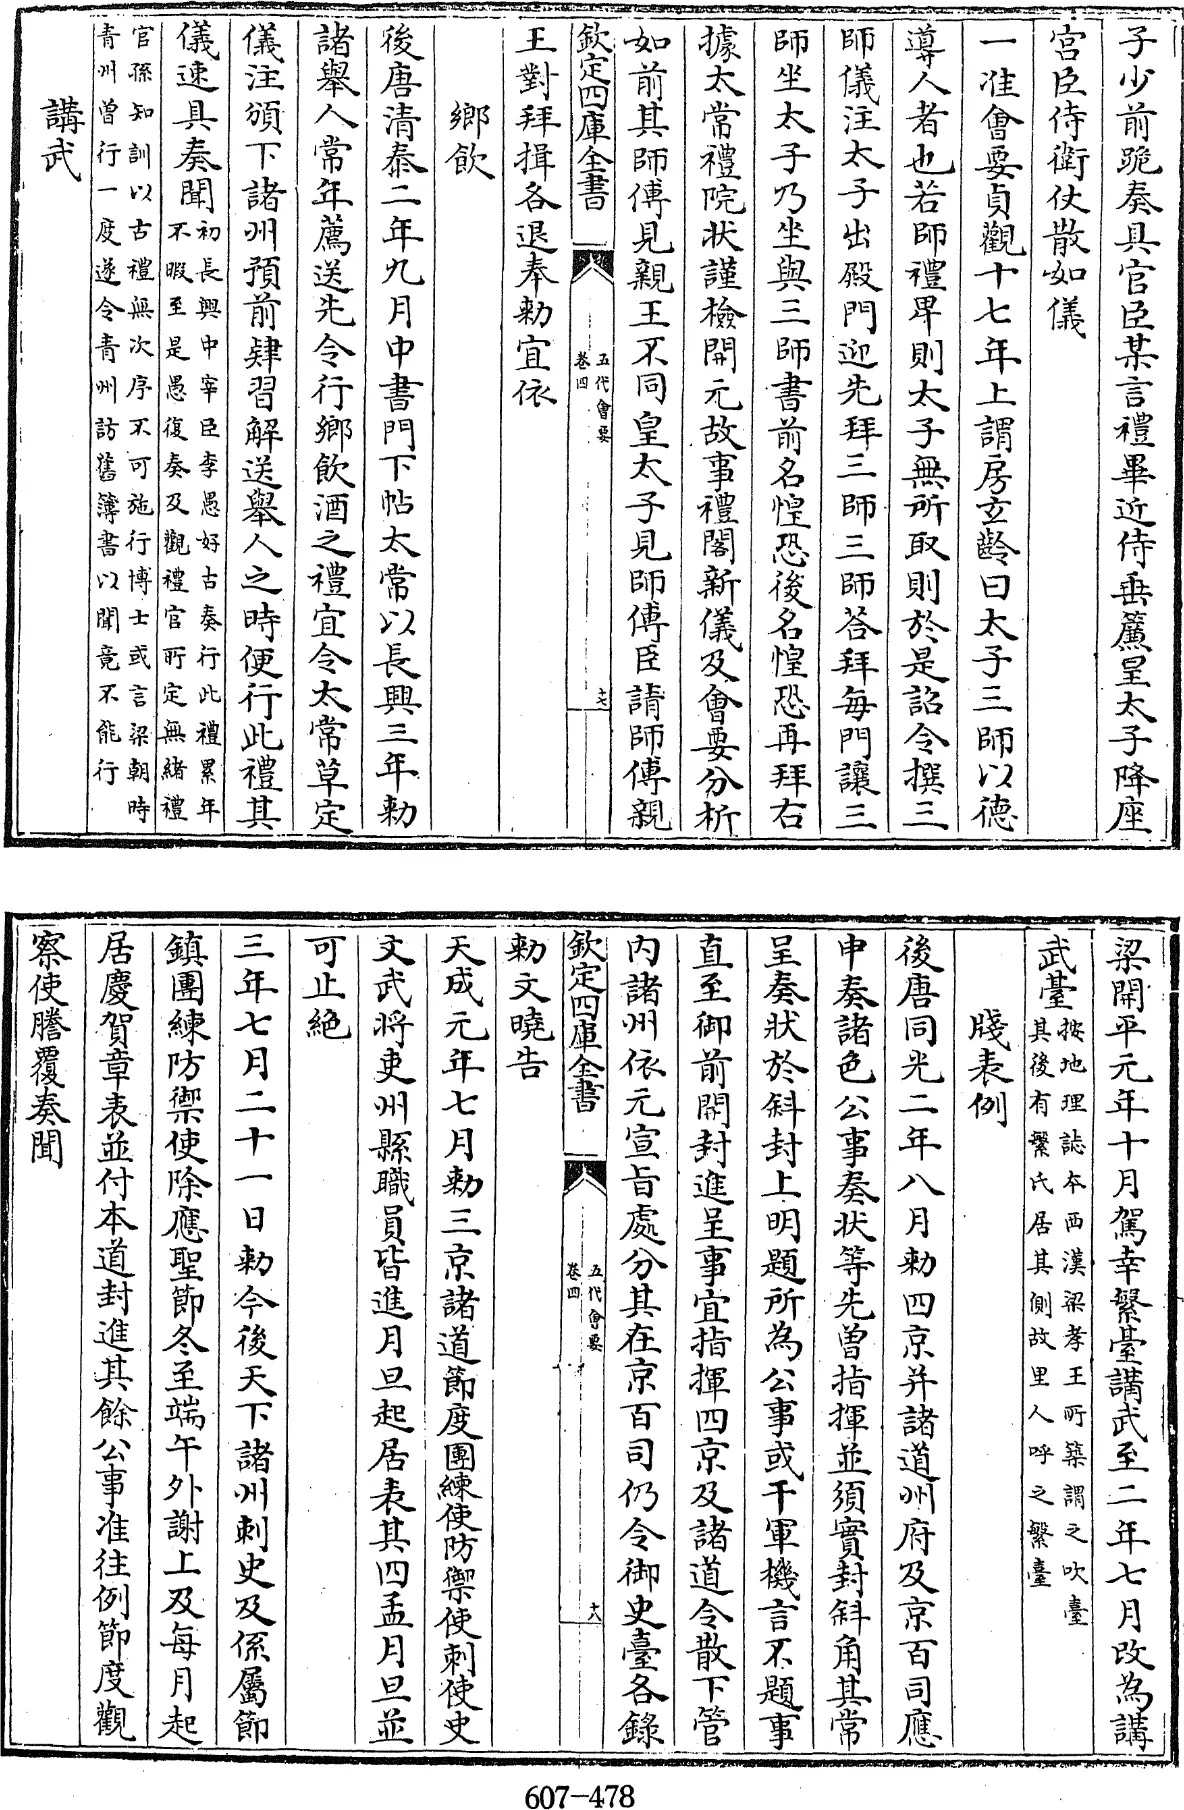 子少前跪奏具官臣某言禮畢近侍垂簾皇太子降座
宮臣侍衛仗散如儀
一准會要貞觀十七年上謂房玄齡曰太子三師以德
導人者也若師禮卑則太子無所取則於是詔令撰三
師儀注太子出殿門迎先拜三師三師答拜每門讓三
師坐太子乃坐與三師書前名惶恐後名惶恐再拜右
據太常禮院狀謹檢開元故事禮閣新儀及會要分析
如前其師傅見親王不同皇太子見師傅臣請師傅親
欽定四庫全書
五代會要
卷四
十七
王對拜揖各退奉勅宜依
鄉飲
後唐清泰二年九月中書門下帖太常以長興三年勅
諸舉人常年薦送先令行鄉飲酒之禮宜令太常草定
儀注頒下諸州預前肄習解送舉人之時便行此禮其
儀速具奏聞初長興中宰臣李愚好古奏行此禮累年
不暇至是愚復奏及觀禮官所定無緒禮
官孫知訓以古禮無次序不可施行博士或言梁朝時
青州曾行一度遂令青州訪舊簿書以聞竟不能行
講武
梁開平元年十月駕幸繁臺講武至二年七月改為講
武臺按地理誌本西漢梁孝王所築謂之吹臺
其後有繁氏居其側故里人呼之繁臺
牋表例
後唐同光二年八月勅四京并諸道州府及京百司應
申奏諸色公事奏狀等先曾指揮並須實封斜角其常
呈奏狀於斜封上明題所為公事或干軍機言不題事
直至御前開封進呈事宜指揮四京及諸道令散下管
內諸州依元宣旨處分其在京百司仍令御史臺各錄
欽定四庫全書
五代會要
卷四
十八
勅文曉告
天成元年七月勅三京諸道節度團練使防禦使刺使史
文武將吏州縣職員皆進月旦起居表其四孟月旦並
可止絕
三年七月二十一日勅今後天下諸州刺史及係屬節
鎮團練防禦使除應聖節冬至端午外謝上及每月起
居慶賀章表並付本道封進其餘公事准往例節度觀
察使謄覆奏聞
607-478